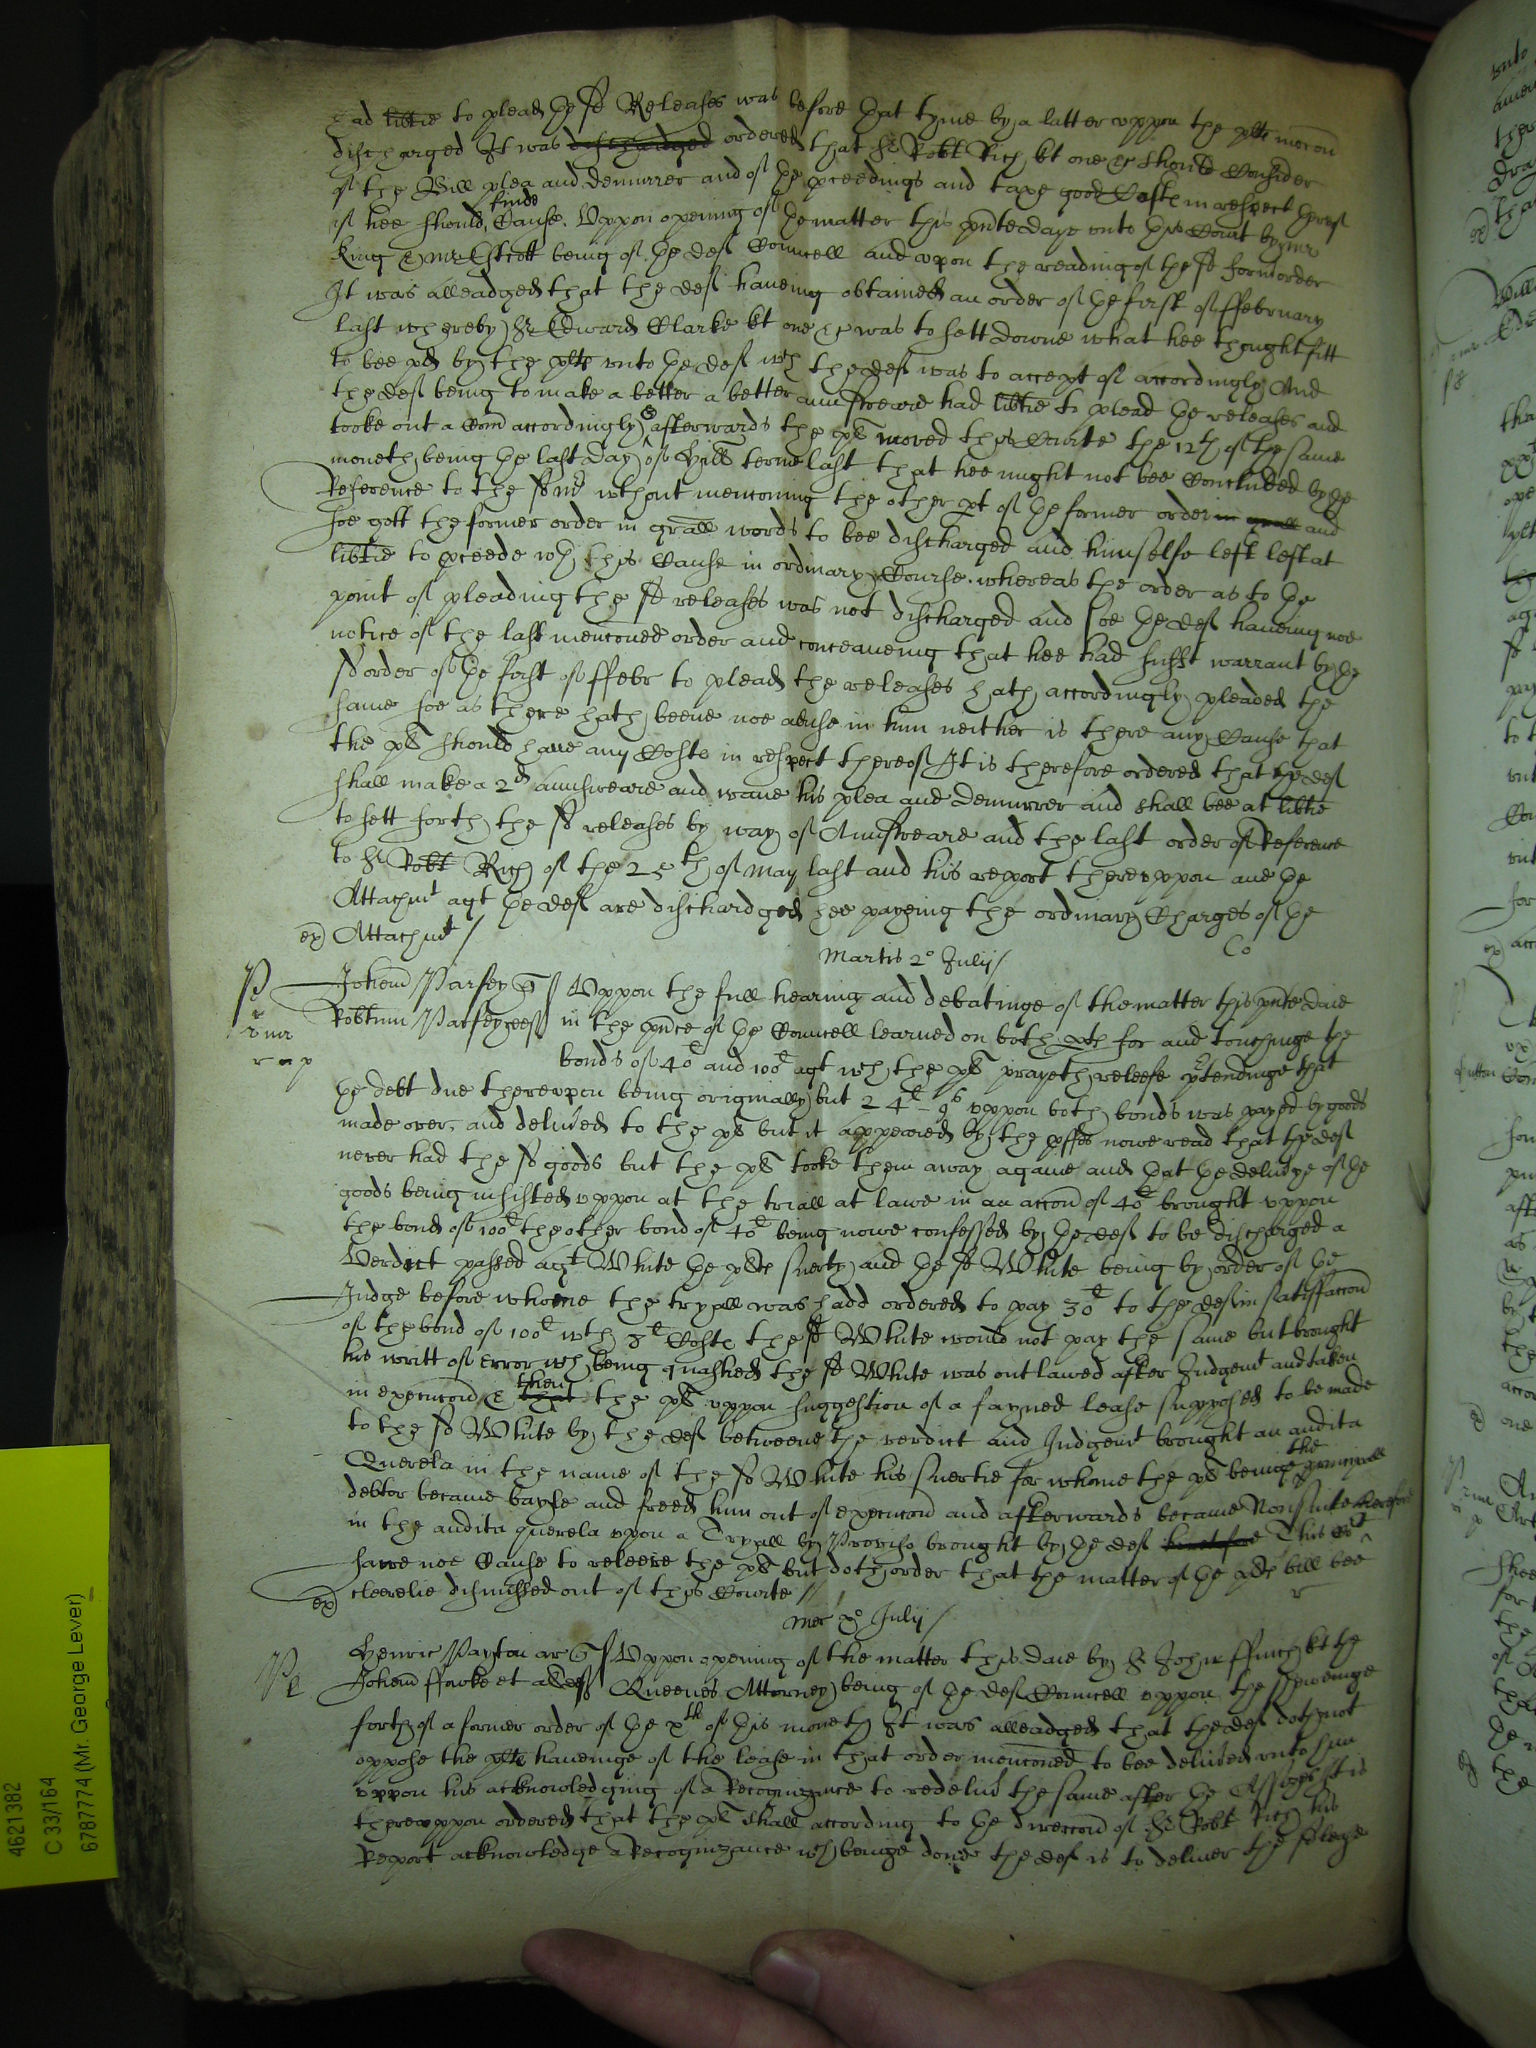 had lib̃tie to plead ye sd Releases was before that tyme by a latter uppon the plts mocon
discharged It was dischardged ordered that Sr Robt Rich kt one &c should Consider
of the Bill plea and demurrer and of ye pceedings and taxe good Costs in respect thereof
if hee should finde Cause. Uppon opening of ye matter this pnte daye unto this Court by mr
King & mr Estcott being of ye defts Councell and upon the reading of the sd form order
It was alleadged that the deft haveing obtained an order of ye first of ffebruary
last whereby Sr Edward Clarke kt one &c was to sett downe what hee thought fitt
to bee pd by the plts unto ye deft wch the deft was to accept of accordingly And
the deft being to make a better a better aunsweare had libtie to plead ye releases and
tooke out a Com accordingly & afterwards the pl moved this Courte the 12th of the same
moneth being ye last day of Hill terme last that hee might not bee Concluded by ye
Reference to the sd mr wthout menconing the other pt of ye former order in grall and
soe gott the former order in grall words to bee discharged and himselfe left left at
libtie to pceede wth this Cause in ordinary Course. whereas the order as to ye
point of pleading the sd releases was not discharged and soe ye deft haveing noe
notice of the last menconed order and conceaveing that hee had sufft warrant by ye
sd order of ye first of ffebr to plead the releases hath accordingly pleaded the
same soe as there hath beene noe abuse in him neither is there any Cause that
the pl should have any Costs in respect thereof It is therefore ordered that the deft
shall make a 2d aunsweare and wave his plea and demurrer and shall bee at libtie
to sett forth the sd releases by way of Aunsweare and the last order of Reference
to Sr Robt Rich of the 25th of may last and his report thereuppon and ye
Attachmt agt ye deft are dischardged hee payeing the ordinary Charges of ye
ex Attachmt /
Co
Martis 2o Julij /
P
Johem Parsey q Uppon the full hearing and debatinge of the matter this pnte daie
Robtum Parsey deft in the pnce of ye Councell learned on both pts for and touchinge the
r mr
r e p
bonds of 40l and 100l agt wch the pl prayeth releefe ptendinge that
ye debt due thereupon being originally but 24l - 9s uppon both bonds was payed by goods
made over, and delived to the pl but it appeared by the pffes nowe read that the deft
never had the sd goods but the pl tooke them away againe and that ye delivye of ye
goods being insisted uppon at the triall at lawe in an accon of 40l brought uppon
the bond of 100l the other bond of 40l being nowe confessed by ye deft to be discharged a
Verdict passed agt White ye plts suerty and ye sd White being by order of ye
Judge before whome the tryall was hadd ordered to pay 30l to the deft in satisfaccon
of the bond of 100l wth 3l Costs the sd White would not pay the same but brought
his writt of Error wch being quashed the sd White was outlawed after Judgemt and taken
in execucon & that then the pl uppon suggestion of a fayned lease supposed to be made
to the sd White by the deft betweene the verdict and Judgemt brought an audita
Querela in the name of the sd White his suertie for whome the pl beinge the principall
debtor became bayle and freed him out of execucon and afterwards became Nonsuite
in the audita querela upon a Tryall by Proviso brought by ye deft heretofore therefore This Ct
sawe noe Cause to releeve the pl but doth order that the matter of ye plts bill bee
ex cleerelie dismissed out of this Courte //
r
Mer xo Julij /
Pl
Henric Payton ar q Uppon opening of the matter this daie by Sr John ffinch kt the
Johem ffooke et al deft Queenes Attorney being of ye deft Councell uppon the sheweinge
forth of a former order of ye xth of this moneth It was alleadged that the deft doth not
oppose the plts haveinge of the lease in that order menconed to bee delived unto him
uppon his acknowledging of a Recognizance to redelivr the same after ye Assizes It is
thereuppon ordered that the pl shall according to ye direccon of Sr Robt Rich his
Report acknowledge a Recognizance wch beinge done the deft is to deliver the sd lease
4621382
C 33/164
6787774 (Mr. George Lever)